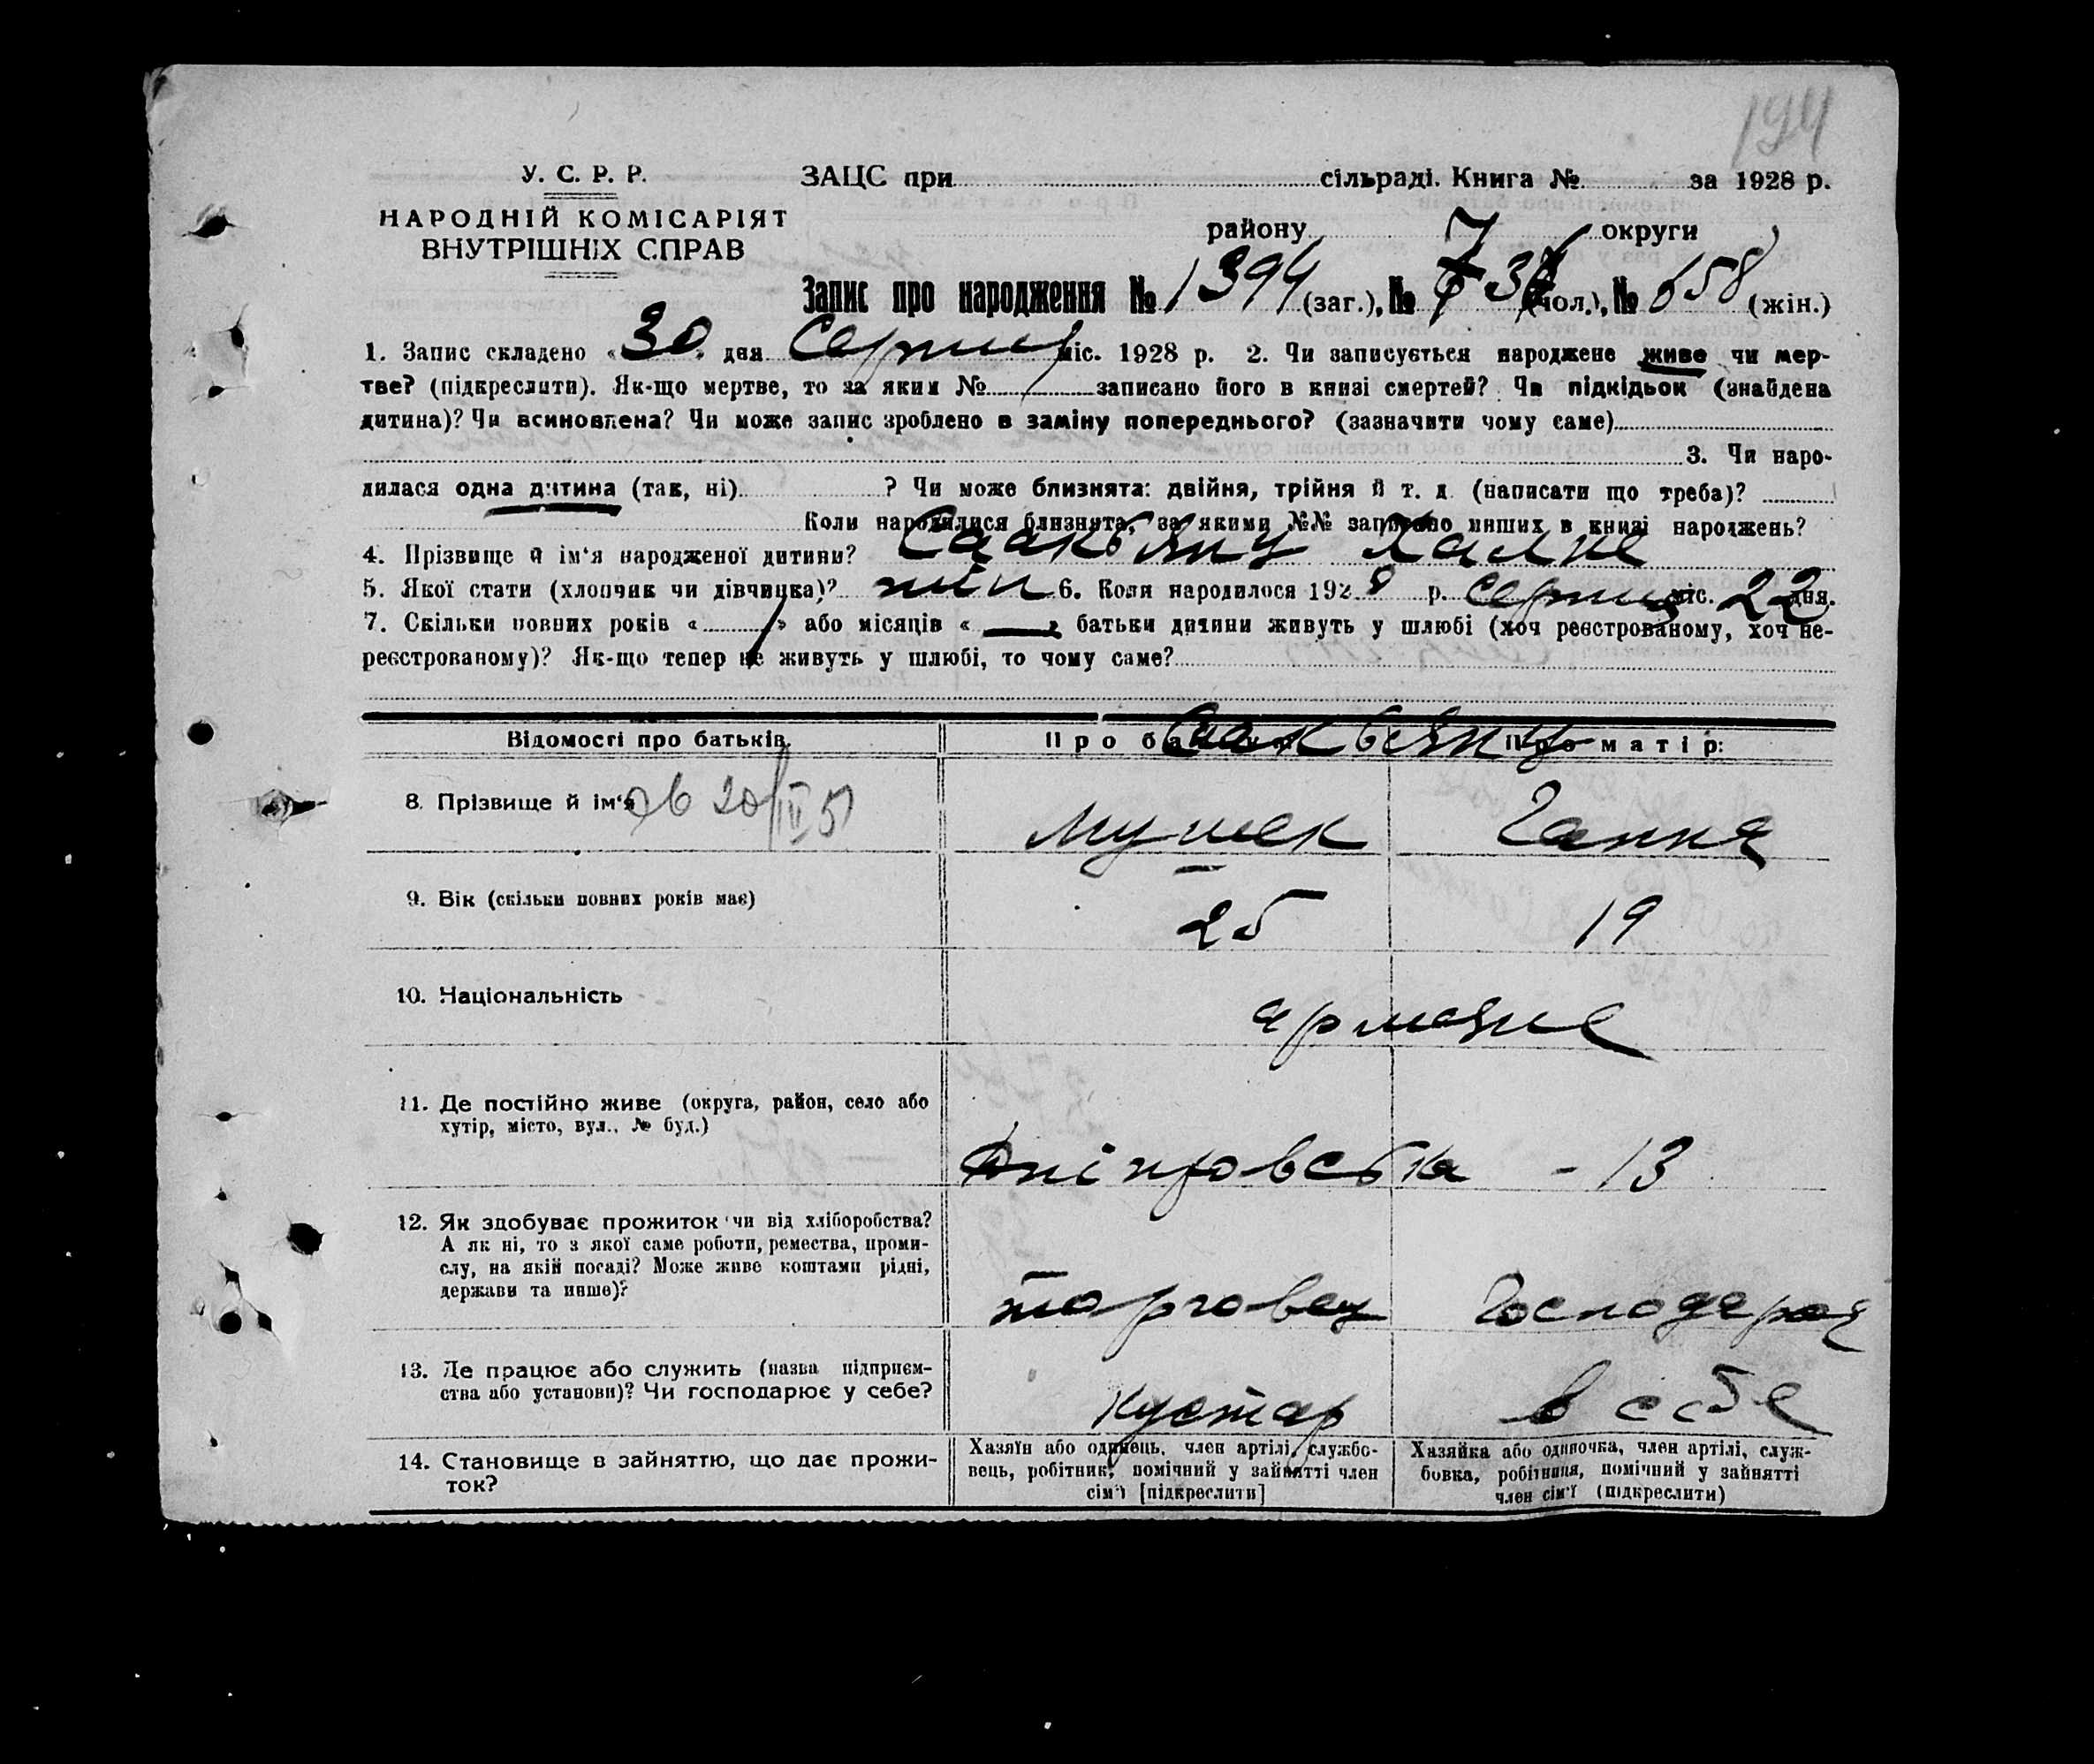 194
У. С. Р. Р.
ЗАЦС при сільраді. Книга № за 1928 р.
НАРОДНІЙ КОМІСАРІЯТ
ВНУТРІШНІХ СПРАВ
району округи
Запис про народження № 1394 (заг.), № 736 (чол.), № 658 (жін.)
1. Запис складено «30» дня Серпня міс. 1928 р. 2. Чи записується народжене живе чи мер-
тве? (підкреслити). Як-що мертве, то за яким № записано його в книзі смертей? Чи підкідьок (знайдена
дитина)? Чи всиновлена? Чи може запис зроблено в заміну попереднього? (зазначити чому саме)
3. Чи наро-
дилася одна дитина (так, ні) ? Чи може близнята: двійня, трійня й т. д. (написати що треба)?
Коли народилися близнята, за якими №№ записано инших в книзі народжень?
4. Прізвище й ім‘я народженої дитини? Саакьянц
5. Якої стати (хлопчик чи дівчинка)? жін 6. Коли народилося 1928 р. серпня міс. 22 дня.
7. Скільки повних років « » або місяців « — » батьки дитини живуть у шлюбі (хоч реєстрованому, хоч не-
реєстрованому)? Як-що тепер не живуть у шлюбі, то чому саме?
Відомості про батьків Про батька Про матір:
Саакьянц
8. Прізвище й ім‘я Мушек Ганна
9. Вік (скільки повних років має) 25 19
10. Національність армяне
11. Де постійно живе (округа, район, село або
хутір, місто, вул., № буд.)
Дніпровська - 13
12. Як здобуває прожиток чи від хліборобства?
А як ні, то з якої саме роботи, ремества, проми-
слу, на якій посаді? Може живе коштами рідні,
держави та инше)?
торговец Господарка
13. Де працює або служить (назва підприєм-
ства або установи)? Чи господарює у себе?
кустар в себе
14. Становище в зайняттю, що дає прожи-
ток?
Хазяїн або одинець, член артілі, службо-
вець, робітник, помічний у зайнятті член
сім‘ї [підкреслити]
Хазяйка або одиночка, член артілі, служ-
бовка, робітниця, помічний у зайнятті
член сім‘ї (підкреслити)